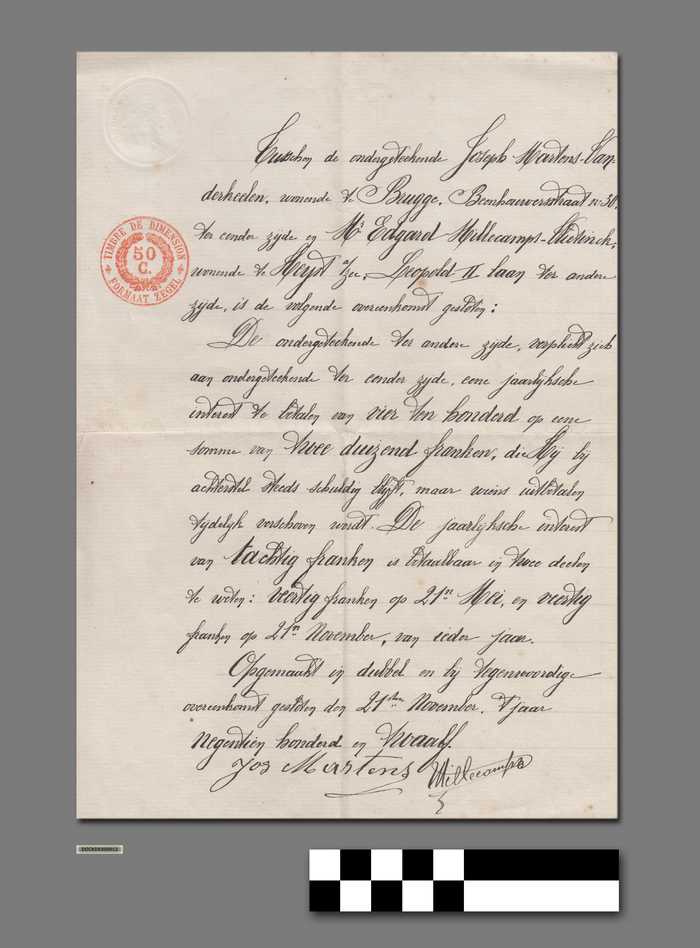 Tusschen de ondergeteekende Joseph Martens-Van-
derheelen, wonende te Brugge, Beenhouwersstraat nr 30,
ter eender zyde en Mr Edgard Millecamps-
wonende te Heyst a/zee, Leopold II laan ter andere
zyde, is de volgende overeenkomst gesloten:
TIMBRE DE DIMENSION
50
C.
FORMAAT ZEGEL
De ondergeteekende ter andere zyde, verplicht zich
aan ondergeteekende ter eender zyde, eene jaarlyksche
interest te betalen van vier ten honderd op eene
somme van twee duizend franken, die Hij bij
achterstel steeds schuldig blyft, maar wiens uitbetalen
tydelyk verschoven wordt. De jaarlyksche interest
van tachtig franken is betaalbaar in twee deelen
te weten: veertig franken op 21n Mei, en veertig
franken op 21n November, van ieder jaar.
Opgemaakt in dubbel en bij tegenwoordige
overeenkomst gesloten den 21sten November, 't jaar
negentien honderd en twaalf.
Jos Martens Millecamps